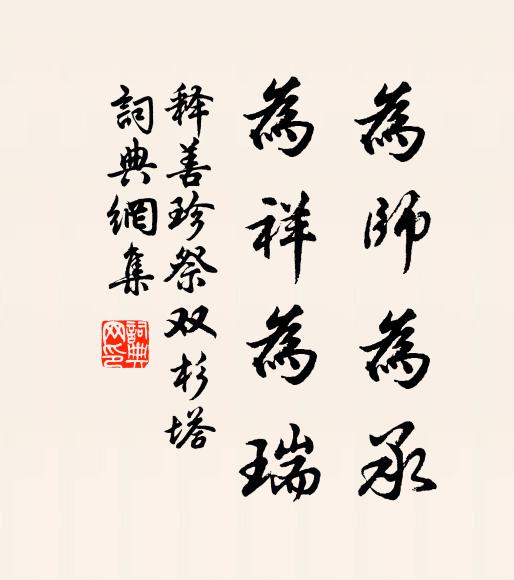 為師為承
為祥為瑞
释善珍祭双杉塔
詞典網集
詞典
网印